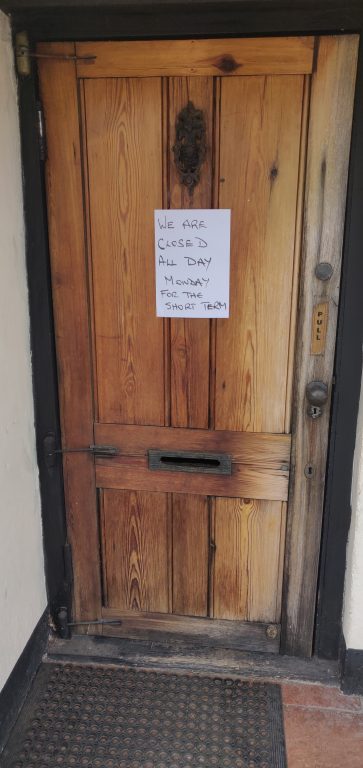 WE ARE
CLOSED
ALL DAY
MONDAY
FOR THE
SHORT TERM
PULL